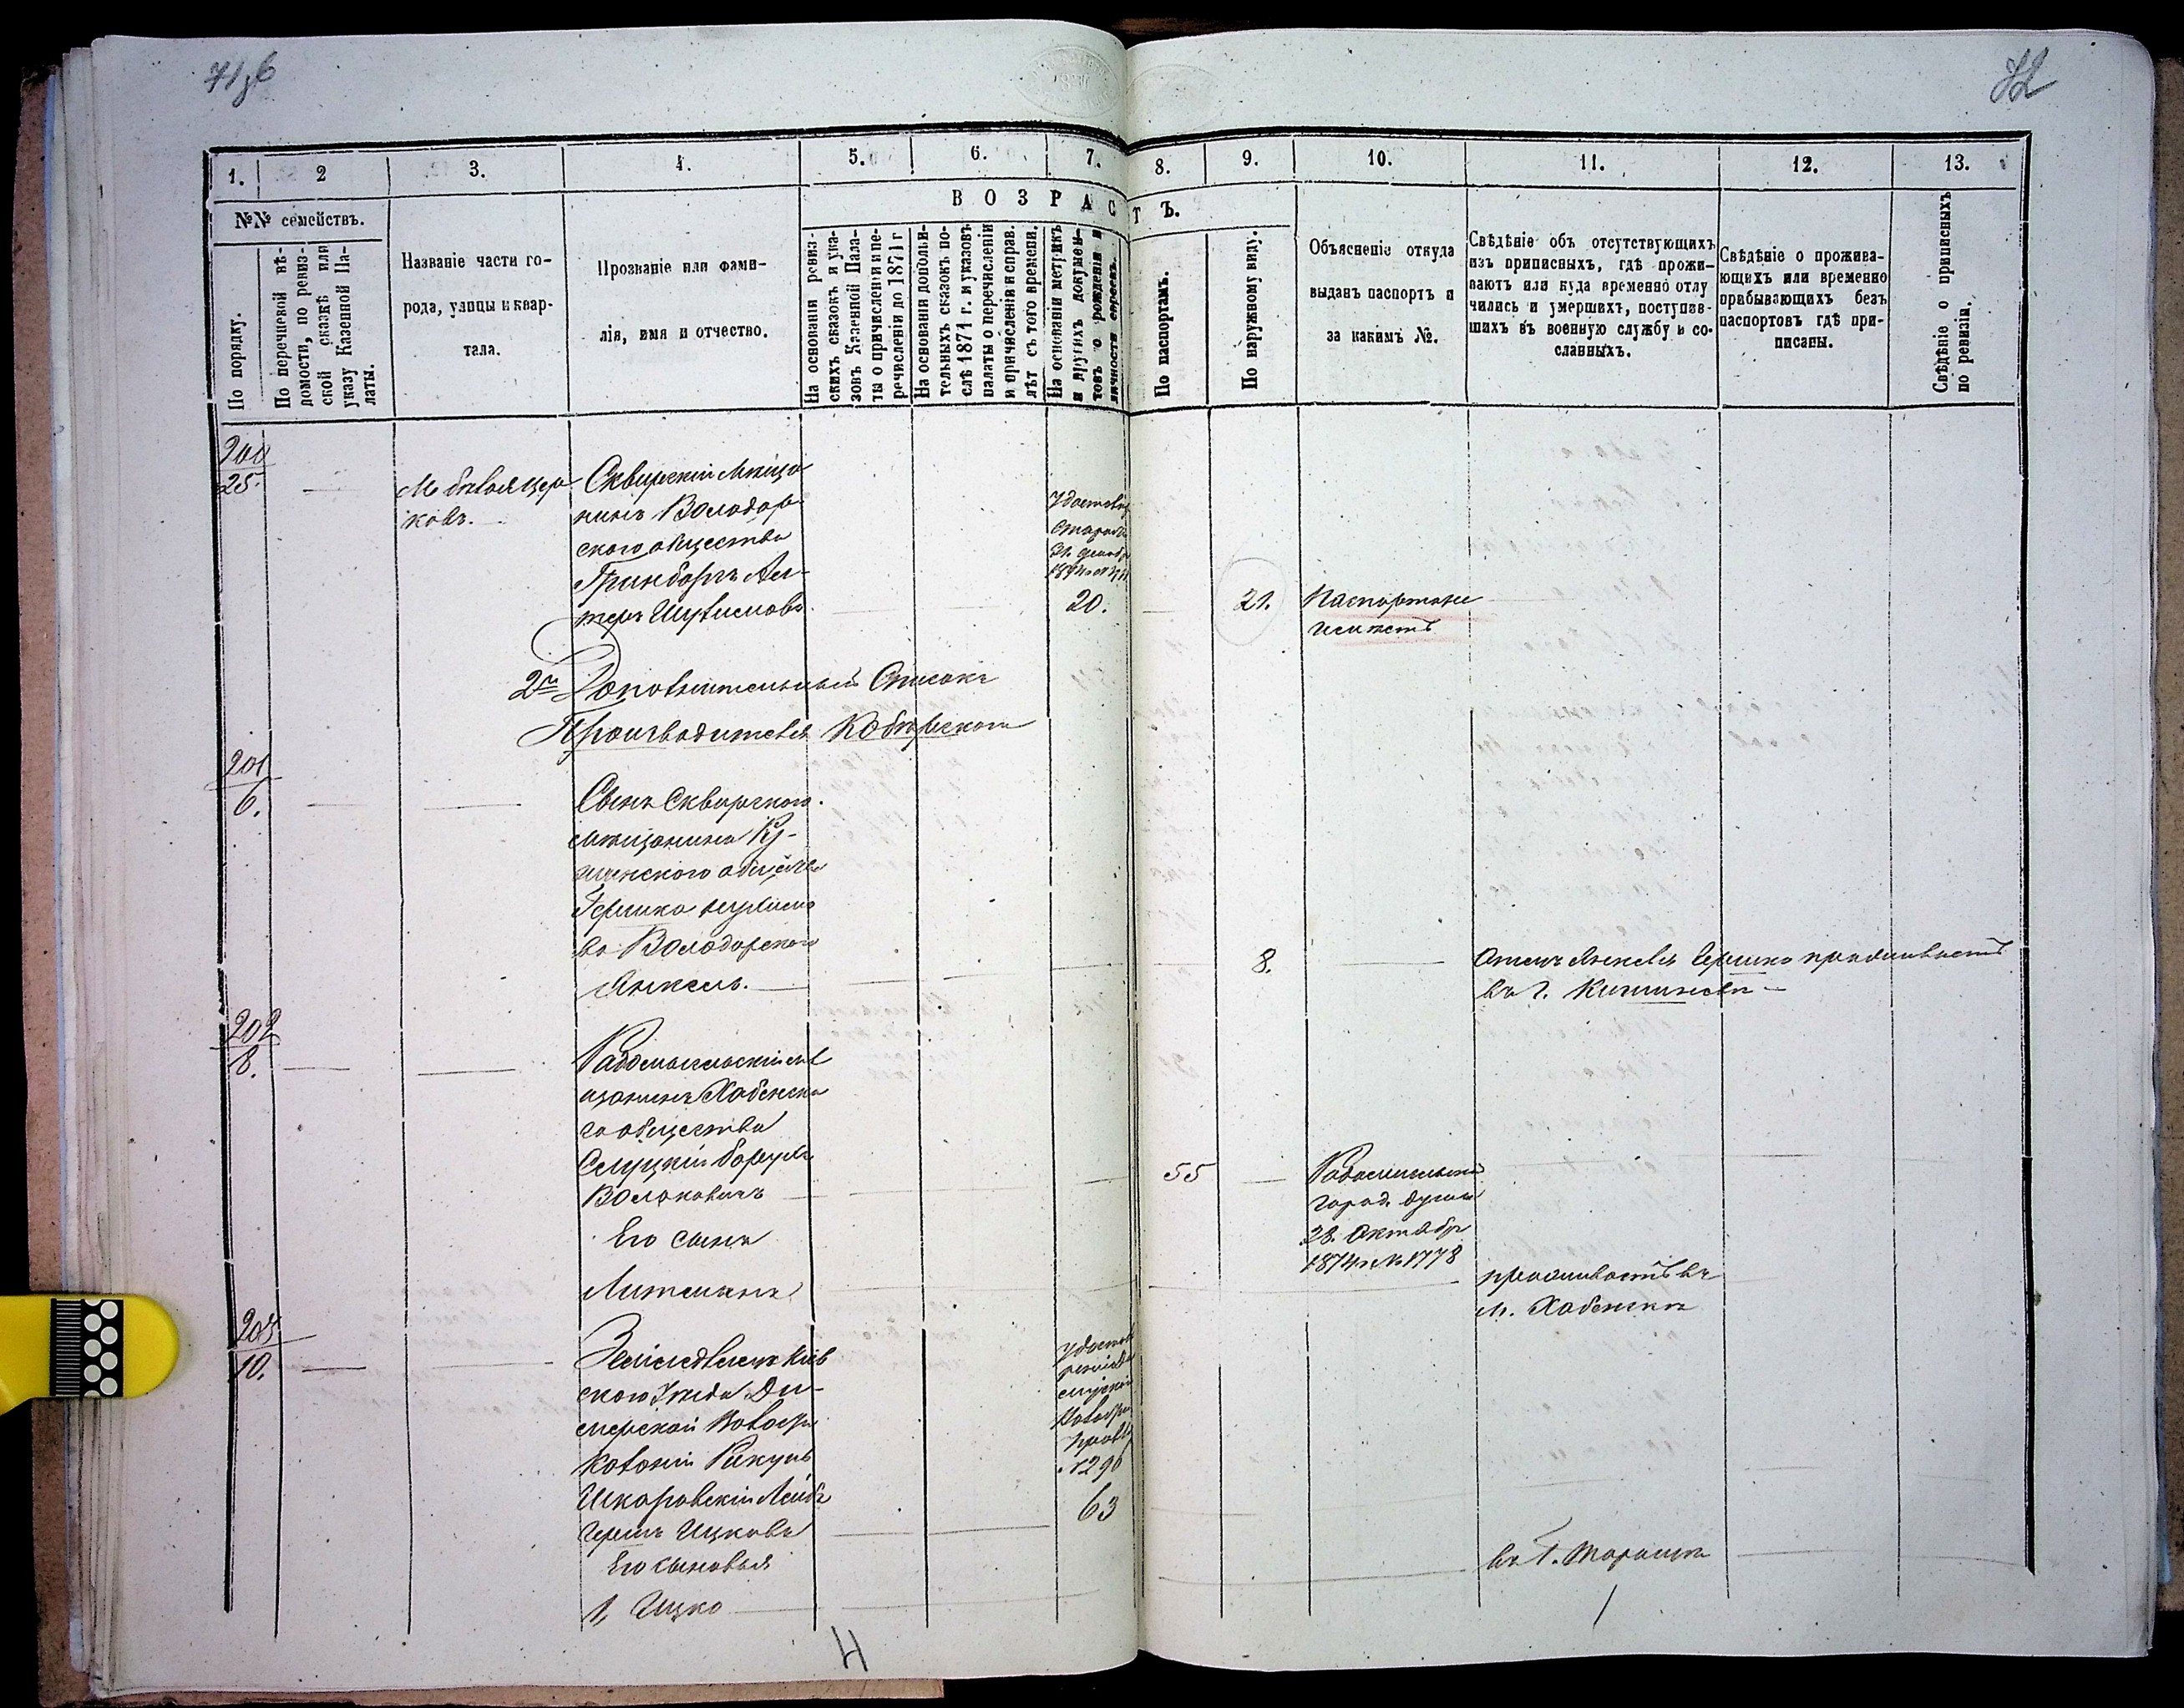 71об
72
1.
2
3.
4.
5.
6.
7.
8.
9.
10.
11.
12.
13.
№№ семействъ.
По порядку.
По перечневой вѣ-
домости, по ревиз-
ской сказкѣ или
указу Казенной Па-
латы.
Названіе части го-
рода, улицы и квар-
тала.
Прозваніе или фами-
лія, имя и отчество.
ВОЗРАСТЪ.
На основаніи ревиз-
скихъ сказокъ и ука-
зовъ Казенной Пала-
ты о причисленіи и пе-
речисленіи до 1871 г
На основаніи дополни-
тельныхъ сказокъ по-
слѣ 1871 г. и указовъ
палаты о перечисленіи
и причисленіи и справ.
лѣт съ того времени.
На основаніи метрикъ
и другихъ докумен-
товъ о рожденіи и
личности евреевъ.
По паспортамъ.
По наружному виду.
Объясненіе откуда
выданъ паспортъ и
за какимъ №.
Свѣдѣніе объ отсутствующихъ
изъ приписныхъ, гдѣ прожи-
ваютъ или куда временно отлу
чились и умершихъ, поступив-
шихъ въ военную службу и со-
сланныхъ.
Свѣдѣніе о прожива-
ющихъ или временно
прибывающихъ безъ
паспортовъ гдѣ при-
писаны.
Свѣдѣніе о приписныхъ
по ревизіи.
200
25.
М бѣлая цер
ковъ.
Сквирскій Мѣща
нинъ Володар
ского общества
Гринборгъ Ал-
теръ Шулимовъ.
20.
21.
Паспорта не
имѣетъ
2й Дополнительный Списокъ
Производителя Кобырского
201
6.
Сынъ Сквирского
мѣщанина Ку-
шинского общества
Гершка Шулимо
ва Володарского
Янкель.
8.
Отецъ Янкеля Гершко проживаетъ
въ г. Кишиневѣ
202
8.
Радомысльскій мѣ
щанинъ Хабенска
го общества
Слуцкій Борухъ
Волковичъ
55
Радомысльской
город. думы
28. Октябр
1874 г №1778
Его сынъ
Литманъ
проживаетъ въ
м. Хабенскѣ
203
10.
Земледѣлецъ Кіев
ского Уѣзда Ди-
мерской Волости
Колоніи Рикунь
Шкаровскій Лейба
Гершъ Ицковъ
№290
63
Его сыновья
1, Ицко
въ г. Таращѣ